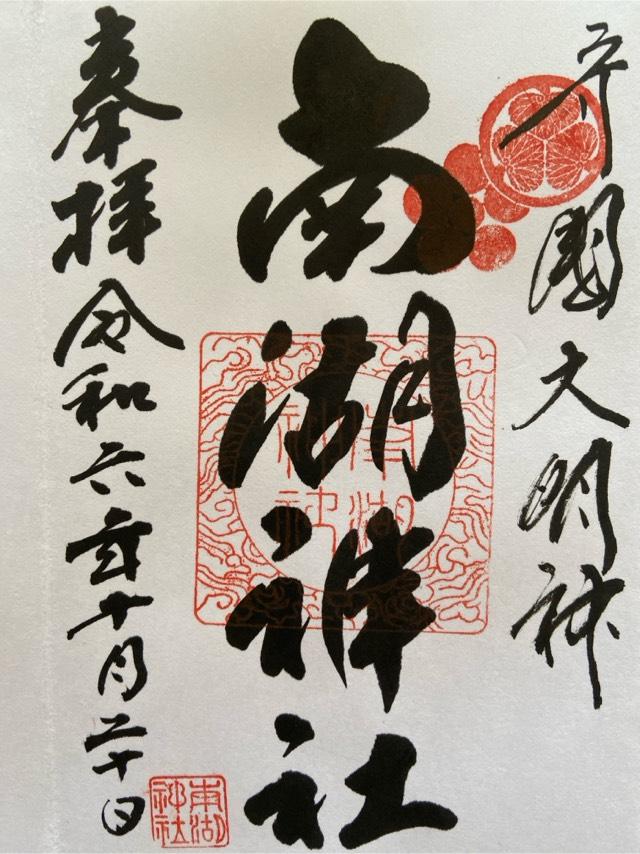 守國大明神
南湖神社
南湖神社
奉拝 令和六年十月二十日
南湖神社